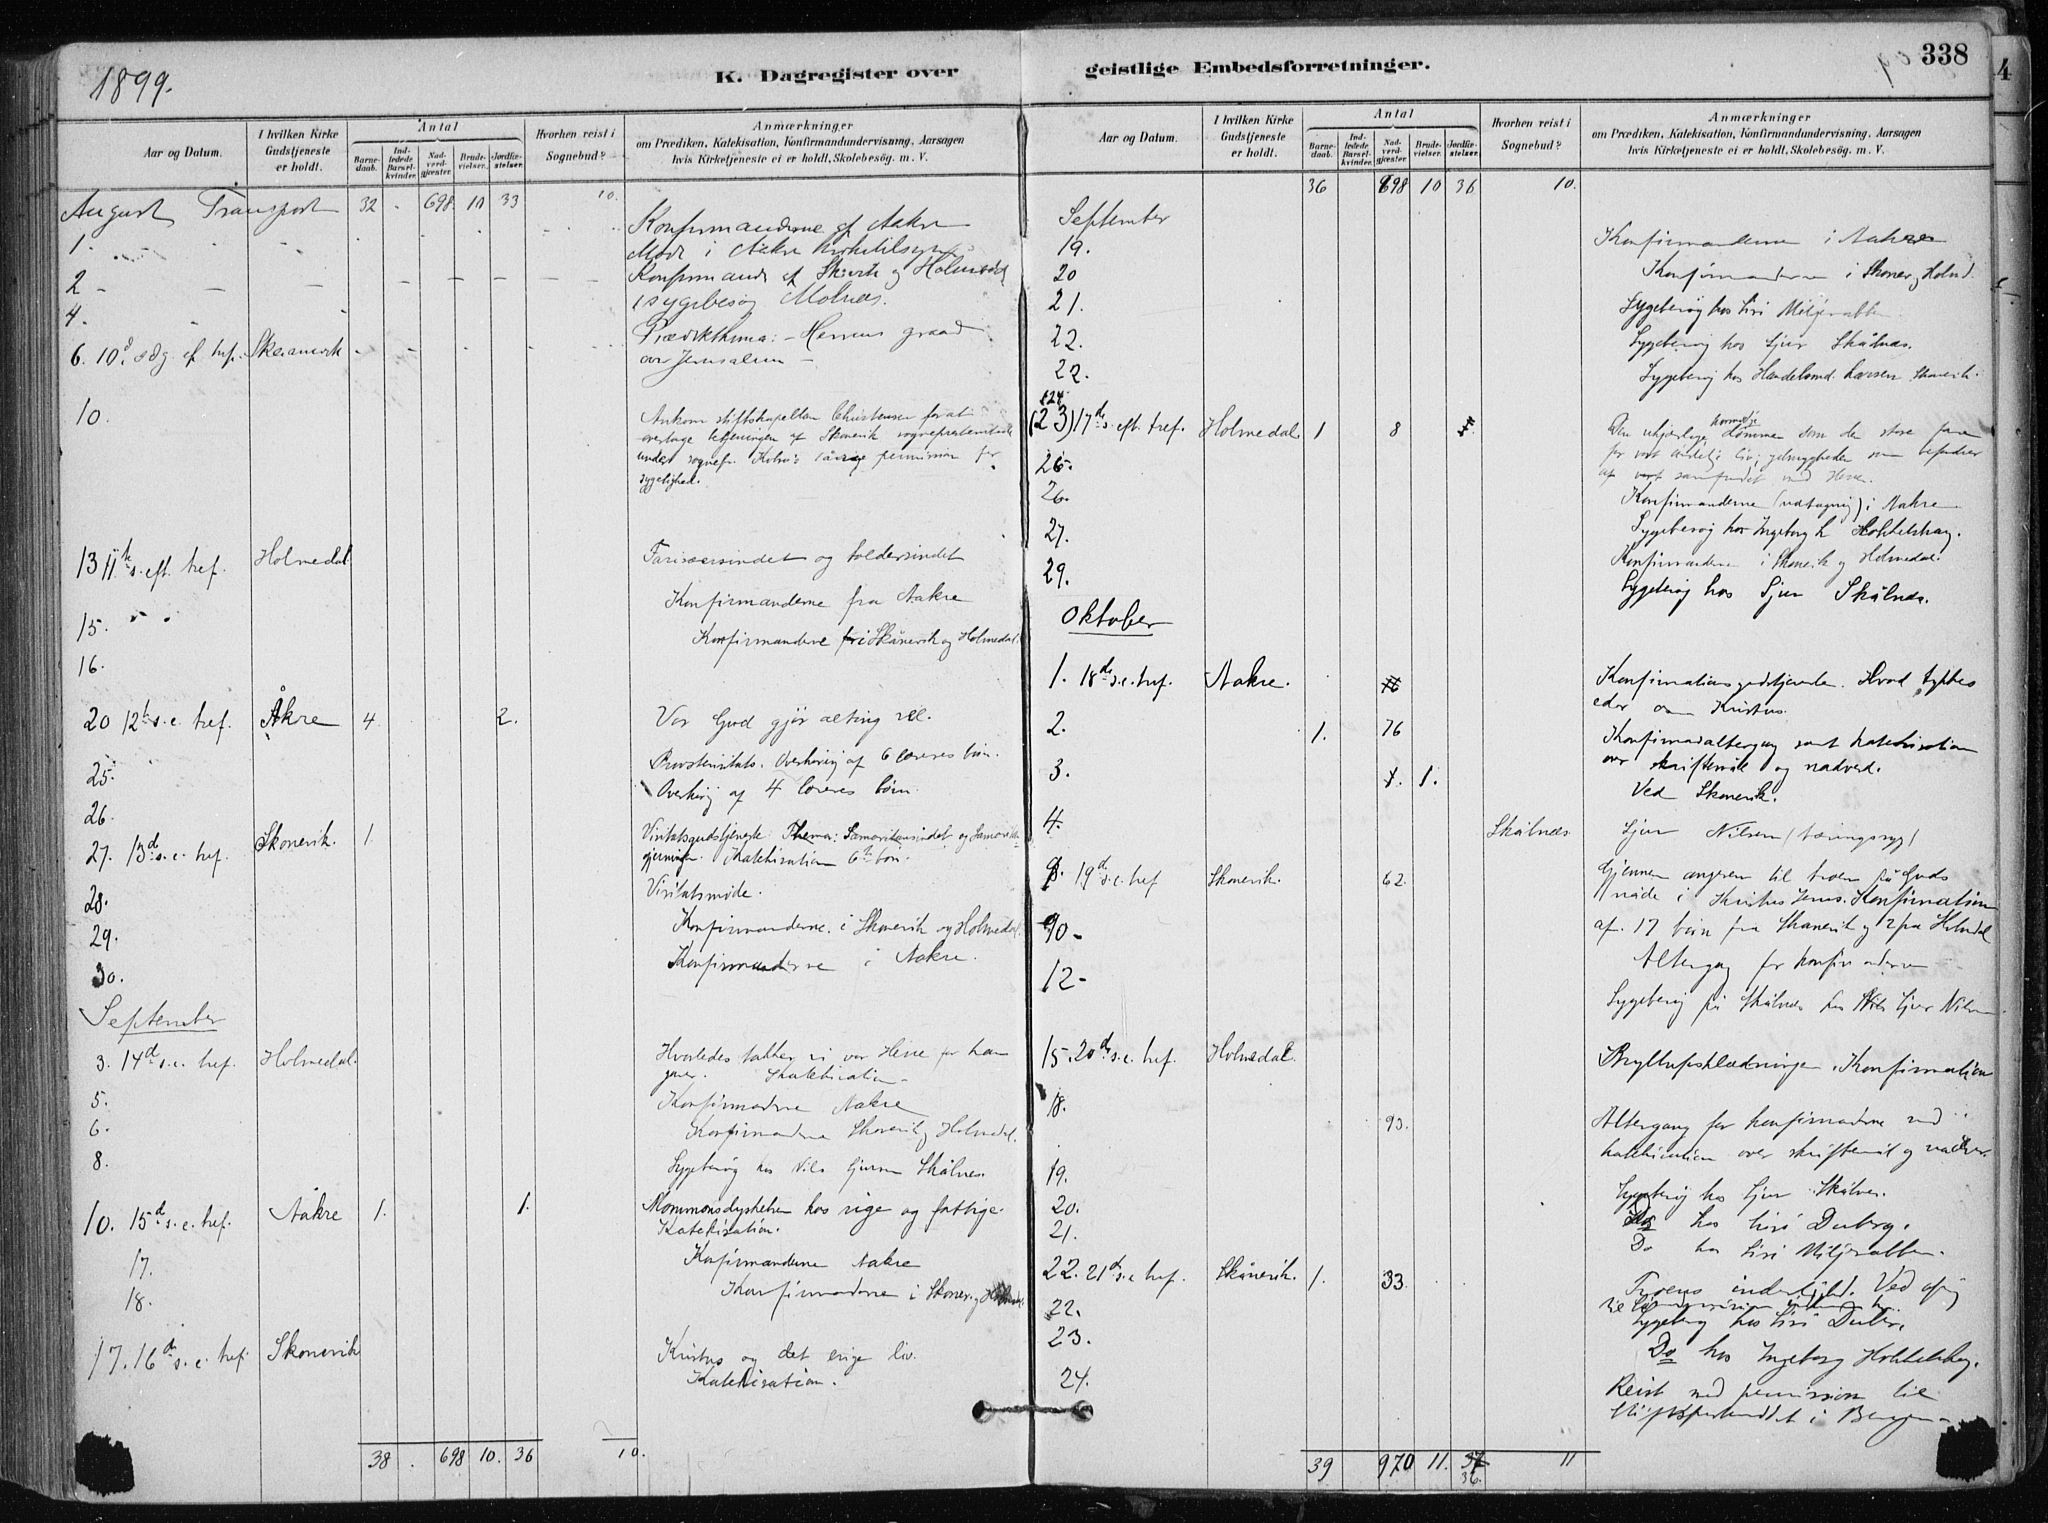 1899.
K. Dagregister over
Aar og Datum.
I hvilken Kirke Gudstjeneste er holdt.
Antal
Barnedaab.
Indledede Barselkvinder.
Nadverdgjester.
Brudevielser.
Jordfæstelser.
Hvorhen reist i Sognebud?
Anmærkninger
om Prædiken, Katekisation, Konfirmandundervisning, Aarsagen
hvis Kirketjeneste ei er holdt, Skolebesøg. m. V.
August Transport 32 698 10 33 10.
1. Konfirmanderne af Aakre
Møde i Aakre
2 Konfirmand. af Skånevik og Holmedal
4. sygebesøg Molnes.
6. 10d. sdg. ef. tref. Skaanevik - Herrens graad
over Jerusalem
10. Ankom stiftskapellan Christensen for at
overtage betjeningen af Skonevik sogneprestembede
under sognepr. permission for
sygelighed.
13 11te s. eft. tref. Holmedal Farisæersindet og toldersindet
15. Konfirmanderne fra Aakre
16. Konfirmanderne i Skånevik og Holmedal.
20 12te s. e. tref. Åkre 4. 2. Vor Gud gjør alting vel.
25. Overhøring af 6 læreres børn.
26. Overhøring af 4 læreres børn.
27. 13d s. e. tref. Skonevik. 1 Visitatsgudstjeneste. Thema: Samaritansindet og
gjerningen. Katekisation 6te bøn.
28. Visitatsmøde.
29. Konfirmanderne i Skonevik og Holmedal.
30. Konfirmanderne i Aakre.
September
3. 14d s. e. tref. Holmedal. Hvorledes takker vi vor Herre for hans
gaver. Katekisation.
5. Konfirmanderne Aakre
6. Konfirmanderne Skonevik og Holmedal.
8. Sygebesøg hos Nils Sjursen Skålnes
10. 15d s. e. tref. Aakre 1. 1. Mammonsdyrkelsen hos rige og fattige.
Katekisation.
17. Konfirmanderne Aakre
18. Konfirmanderne i Skonev. og
17. 16d s. e. tref. Skonevik Kristus og det evige liv.
Katekisation.
38 . 698 10. 36 10.
338
geistlige Embedsforretninger.
Aar og Datum.
I hvilken Kirke Gudstjeneste er holdt.
Antal
Barnedaab.
Indledede Barselkvinder.
Nadverdgjester.
Brudevielser.
Jordfæstelser.
Hvorhen reist i Sognebud?
Anmærkninger
om Prædiken, Katekisation, Konfirmandundervisning, Aarsagen
hvis Kirketjeneste ei er holdt, Skolebesøg. m. V.
36 698 10 36 10.
September
19. Konfirmanderne i Aakre
20 Konfirmanderne i Skonev. og Holmd.
21. Sygebesøg hos Siri
22. Sygebesøg hos Sjur Skålnes.
22. Sygebesøg hos Handelsmd. Larsen Skonevik.
24
(23) 17de s. eft. tref. Holmedal. 1 8 Den ukjærlige som den store fare
for vort åndelige liv;
af vort samfundet med Herren.
26.
26. Konfirmanderne i Aakre
27. Sygebesøg hos Ingeborg
29. Konfirmanderne i Skonevik og Holmedal.
Sygebesøg hos Sjur Skålnes.
Oktober
1. 18de s. e. tref. Aakre. Konfirmationsgudstjeneste. Hvad tykkes
eder om Kristus.
2. 1. 76 Konfirmandaltergang samt katekisation
over skriftemål og nadverd.
3. 1. Ved Skonevik.
4. Skålnes Sjur Nilsen (tæringssyg)
8. 19d s. e. tref Skonevik. 62. Gjennem angeren til troen på Guds
nåde i Kristus Jesus. Konfirmation
af. 17 børn fra Skonevik og 2 fra Holmedal
90- Altergang for konfirmanderne
12- Sygebesøg på Skålnes hos Sjur Nilsen
15. 20de s. e. tref. Holmedal. Bryllupsklædningen. Konfirmation
18. 93. Altergang for konfirmanderne med
katekisation over skriftemål og nadver.
19. Sygebesøg hos Sjur Skålnes.
20. Do hos Siri Duberg.
21. Do hos Siri
22. 21d s. e. tref. Skånevik. 1. 33. Troens inderlighed.
22. Sygebesøg hos Siri
23. Do hos Ingeborg
24. Reist med permission til
i Bergen
39 970 11. 36. 11